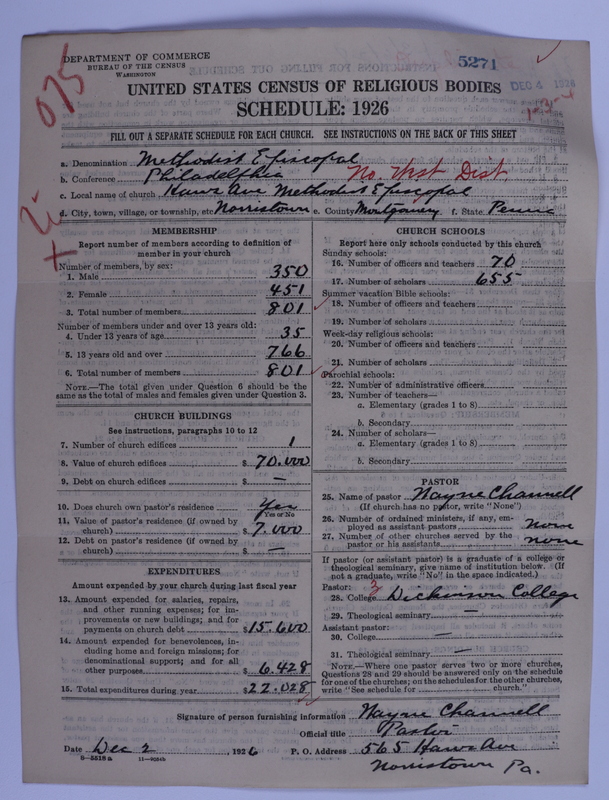 DEPARTMENT OF COMMERCE
BUREAU OF THE CENSUS
WASHINGTON
5271
DEC 4 1926
1-3-4
075
UNITED STATES CENSUS OF RELIGIOUS BODIES
SCHEDULE: 1926
FILL OUT A SEPARATE SCHEDULE FOR EACH CHURCH. SEE INSTRUCTIONS ON THE BACK OF THIS SHEET
a. Denomination Methodist Episcopal
b. Conference Philadelphia No. West Dist.
c. Local name of church Haws Ave Methodist Episcopal
d. City, town, village, or township, etc. Norristown e. County Montgomery f. State Penna
MEMBERSHIP
Report number of members according to definition of
member in your church
Number of members, by sex:
1. Male 350
2. Female 451
3. Total number of members 801
Number of members under and over 13 years old:
4. Under 13 years of age 35
5. 13 years old and over 766
6. Total number of members 801
NOTE.—The total given under Question 6 should be the
same as the total of males and females given under Question 3.
CHURCH BUILDINGS
See instructions, paragraphs 10 to 12
7. Number of church edifices 1
8. Value of church edifices $ 70.000
9. Debt on church edifices $ —
10. Does church own pastor's residence Yes
Yes or No
11. Value of pastor's residence (if owned by
church) $ 7.000
12. Debt on pastor's residence (if owned by
church) $ —
EXPENDITURES
Amount expended by your church during last fiscal year
13. Amount expended for salaries, repairs,
and other running expenses; for im-
provements or new buildings; and for
payments on church debt $ 15.600
14. Amount expended for benevolences, in-
cluding home and foreign missions; for
denominational support; and for all
other purposes $ 6.428
15. Total expenditures during year $ 22.028
CHURCH SCHOOLS
Report here only schools conducted by this church
Sunday schools:
16. Number of officers and teachers 70
17. Number of scholars 655
Summer vacation Bible schools:
18. Number of officers and teachers
19. Number of scholars
Week-day religious schools:
20. Number of officers and teachers
21. Number of scholars
Parochial schools:
22. Number of administrative officers
23. Number of teachers—
a. Elementary (grades 1 to 8)
b. Secondary
24. Number of scholars—
a. Elementary (grades 1 to 8)
b. Secondary
PASTOR
25. Name of pastor Wayne Channell
(If church has no pastor, write "None")
26. Number of ordained ministers, if any, em-
ployed as assistant pastors none
27. Number of other churches served by the
pastor or his assistants none
If pastor (or assistant pastor) is a graduate of a college or
theological seminary, give name of institution below. (If
not a graduate, write "No" in the space indicated.)
Pastor: 3
28. College Dickinson College
29. Theological seminary —
Assistant pastor:
30. College —
31. Theological seminary —
NOTE.—Where one pastor serves two or more churches,
Questions 28 and 29 should be answered only on the schedule
for one of the churches; on the schedules for the other churches,
write "See schedule for church."
Signature of person furnishing information Wayne Channell
Official title Pastor
Date Dec 2, 1926 P. O. Address 565 Haws Ave
Norristown Pa.
8-5518a 11-9054b